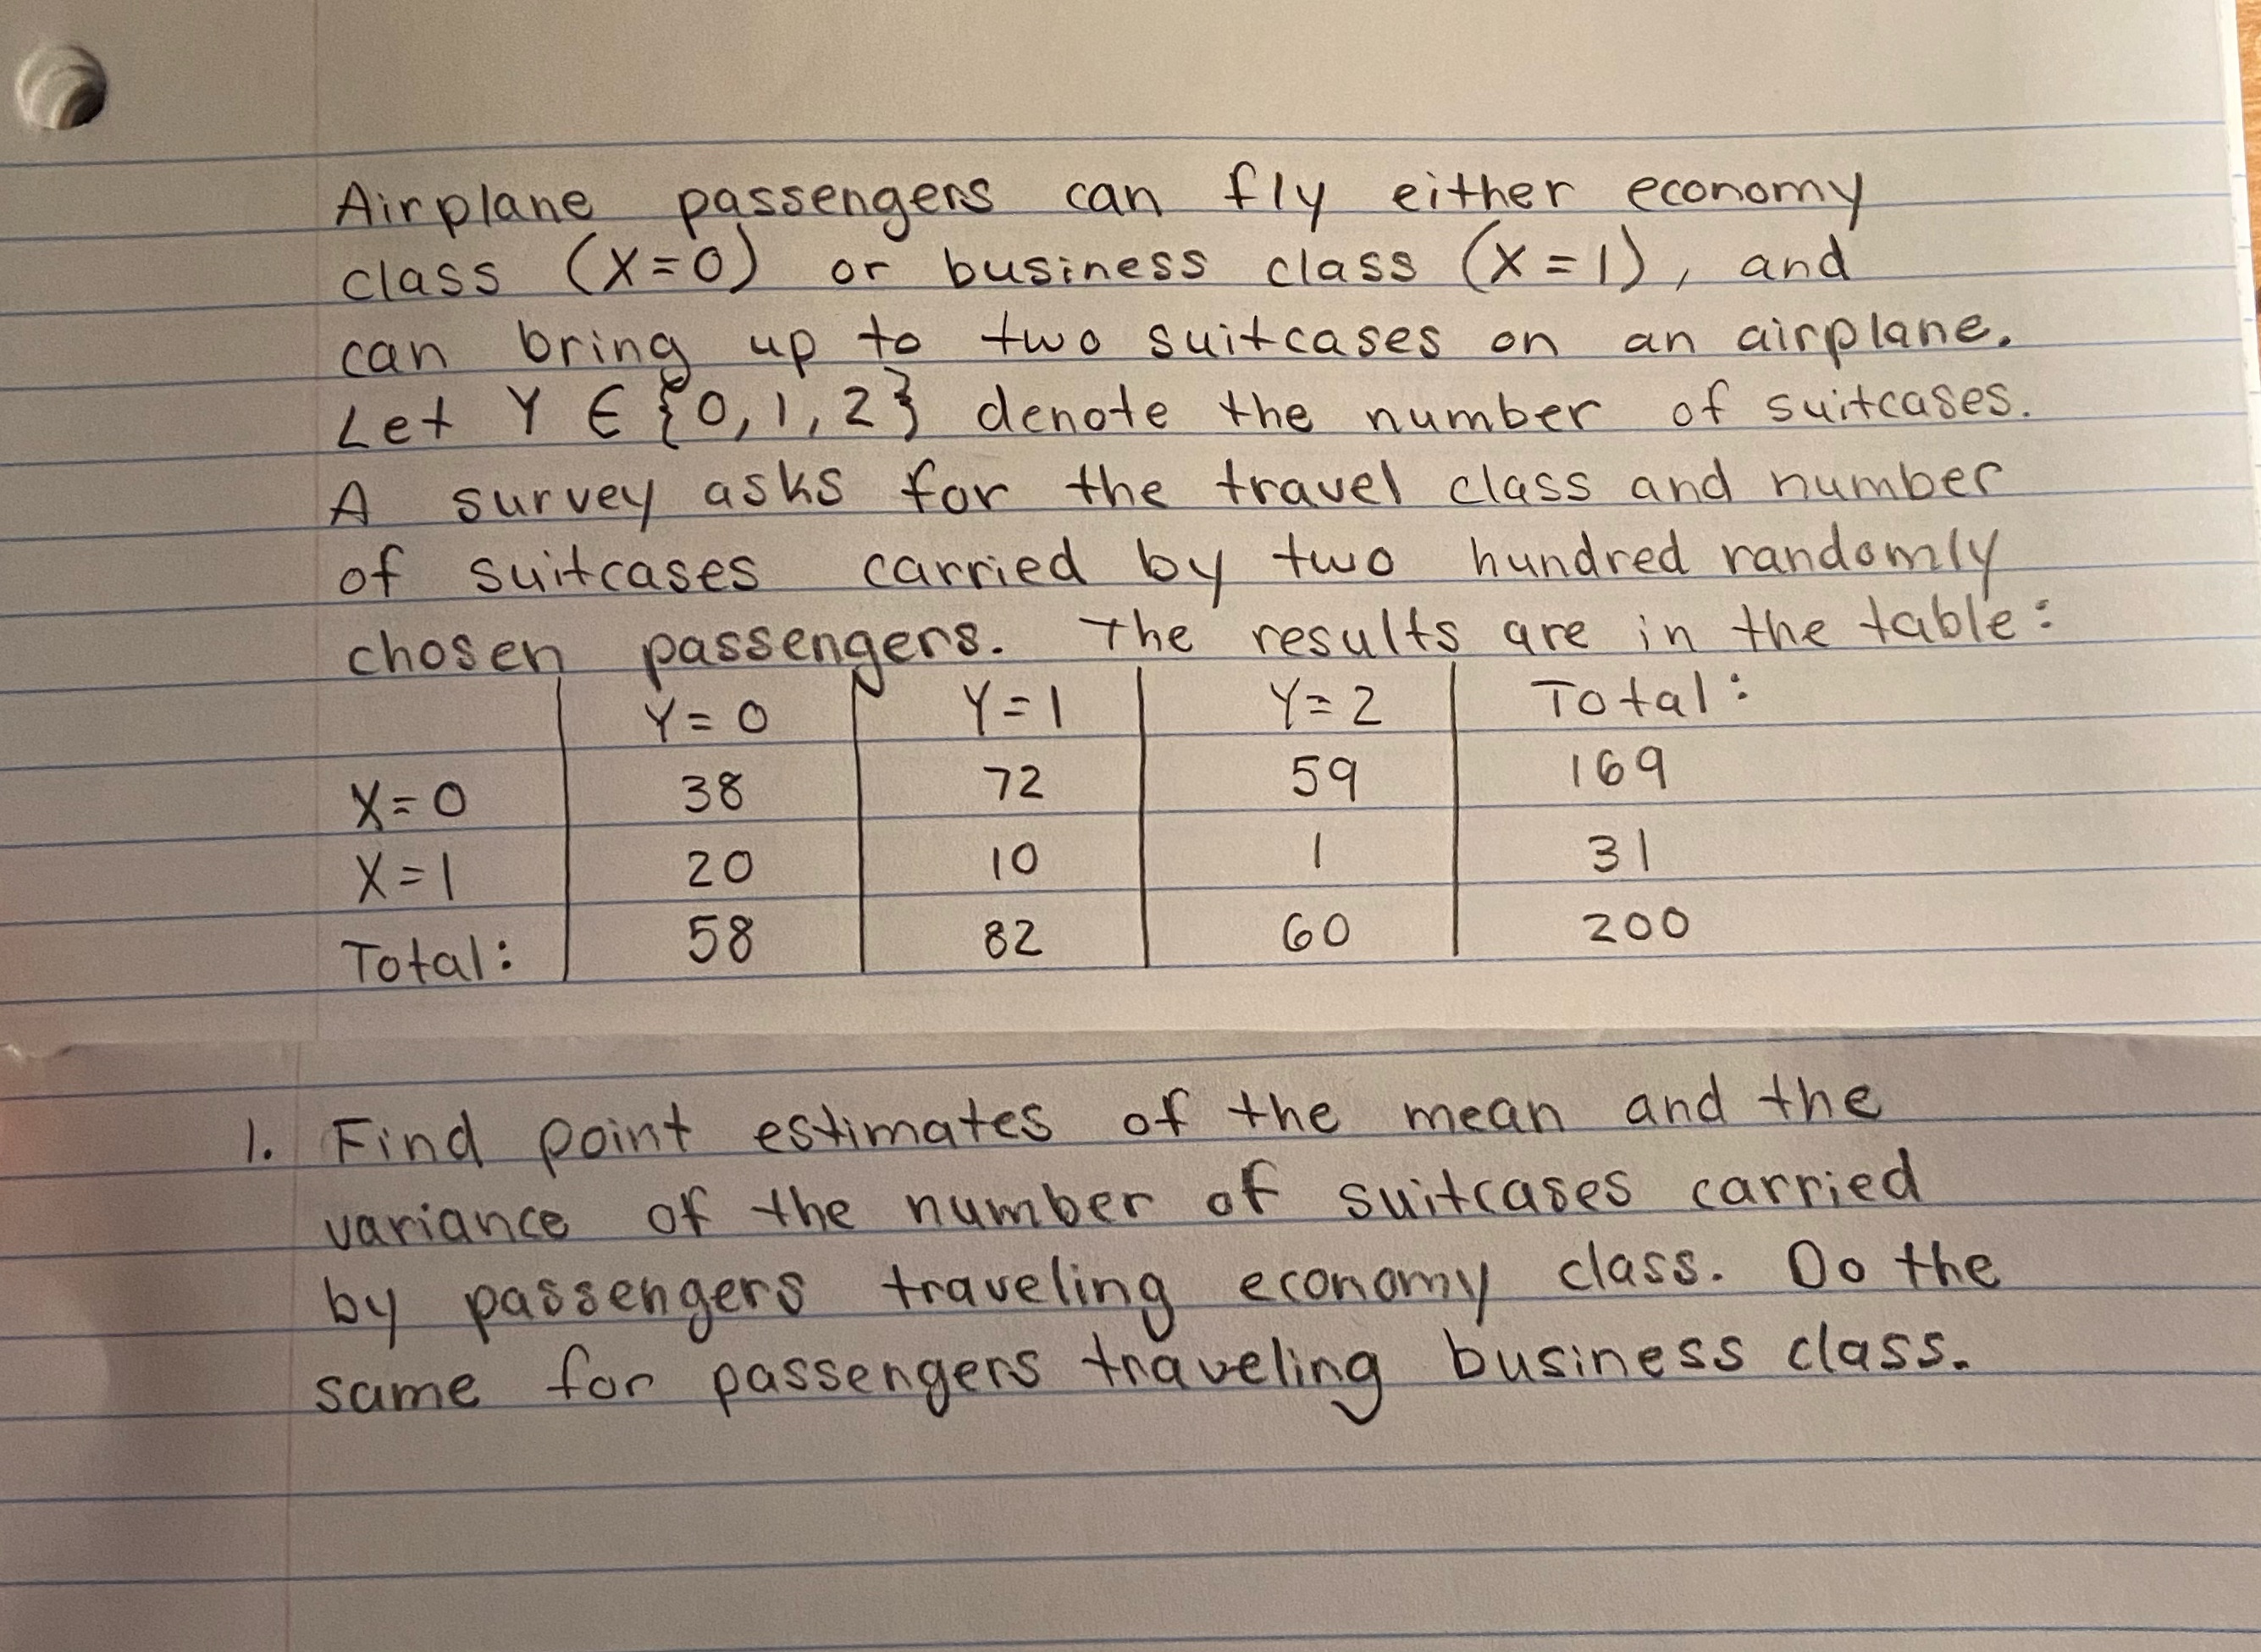 Airplane passengers can fly either economy
class (X=0) or business class (X=1), and
can bring up to two suitcases on an airplane.
Let Y ∈ {0,1,2} denote the number of suitcases.
A survey asks for the travel class and number
of suitcases carried by two hundred randomly
chosen passengers. The results are in the table:
Y=0 Y=1 Y=2 Total:
X=0 38 72 59 169
X=1 20 10 1 31
Total: 58 82 60 200
1. Find point estimates of the mean and the
variance of the number of suitcases carried
by passengers traveling economy class. Do the
same for passengers traveling business class.